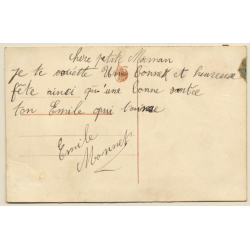 chere petite Maman
je te souhaite Une bonne et heureuse
fête ainsi qu'une bonne santée
ton Emile qui t'aime
Emile
Monnet